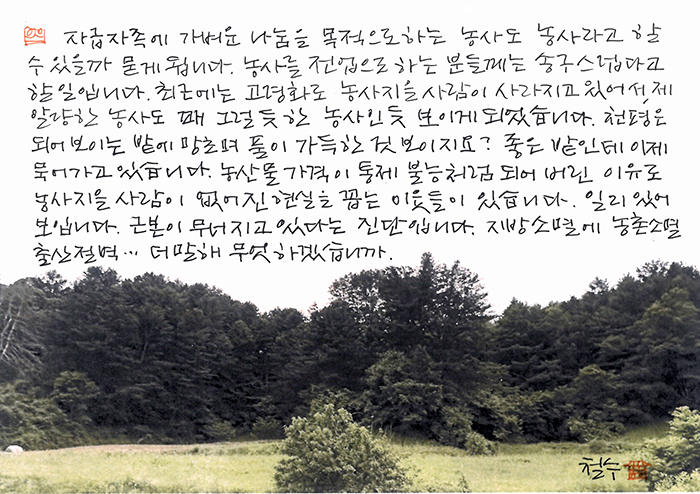 자급자족에 가벼운 나눔을 목적으로하는 농사도 농사라고 할
수 있을까 묻게 됩니다. 농사를 전업으로 하는 분들께는 송구스럽다고
할 일입니다. 최근에는 고령화로 농사지을 사람이 사라지고 있어서, 제
알량한 농사도 꽤 그럴 듯한 농사인 듯 보이게 되었습니다. 천평은
되어 보이는 밭에 망초며 풀이 가득한 것 보이지요? 좋은 밭인데 이제
묵어가고 있습니다. 농산물 가격이 통제 불능처럼 되어 버린 이유로
농사지을 사람이 없어진 현실을 꼽는 이웃들이 있습니다. 일리 있어
보입니다. 근본이 무너지고 있다는 진단입니다. 지방소멸에 농촌소멸
출산절벽… 더 말해 무엇하겠습니까.
철수